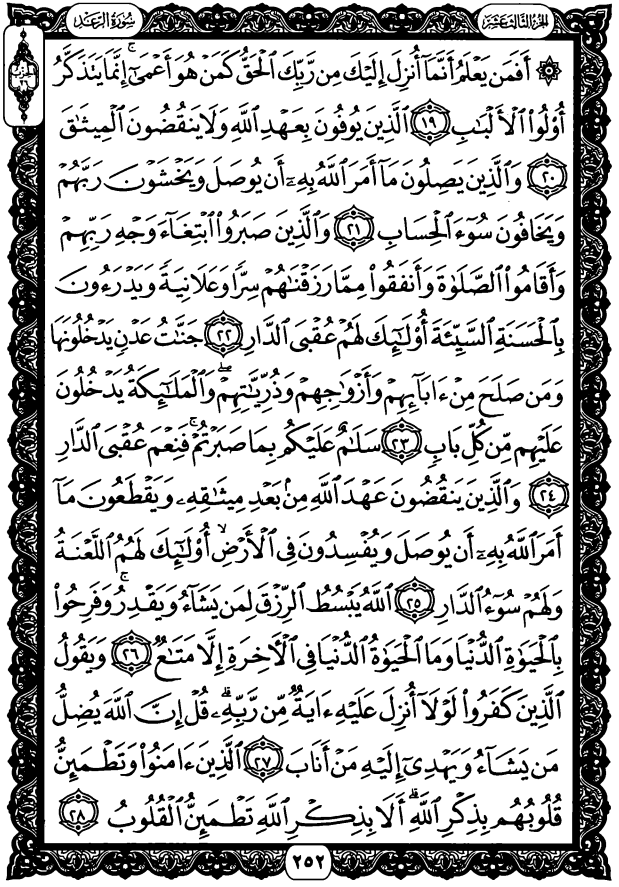 سُورَةُ الرَّعْدِ
الجُزءُ الثَّالِثَ عَشَرَ
۞ أَفَمَن يَعْلَمُ أَنَّمَآ أُنزِلَ إِلَيْكَ مِن رَّبِّكَ ٱلْحَقُّ كَمَنْ هُوَ أَعْمَىٰٓۚ إِنَّمَا يَتَذَكَّرُ
أُو۟لُوا۟ ٱلْأَلْبَٰبِ ١٩ ٱلَّذِينَ يُوفُونَ بِعَهْدِ ٱللَّهِ وَلَا يَنقُضُونَ ٱلْمِيثَٰقَ
٢٠ وَٱلَّذِينَ يَصِلُونَ مَآ أَمَرَ ٱللَّهُ بِهِۦٓ أَن يُوصَلَ وَيَخْشَوْنَ رَبَّهُمْ
وَيَخَافُونَ سُوٓءَ ٱلْحِسَابِ ٢١ وَٱلَّذِينَ صَبَرُوا۟ ٱبْتِغَآءَ وَجْهِ رَبِّهِمْ
وَأَقَامُوا۟ ٱلصَّلَوٰةَ وَأَنفَقُوا۟ مِمَّا رَزَقْنَٰهُمْ سِرًّا وَعَلَانِيَةً وَيَدْرَءُونَ
بِٱلْحَسَنَةِ ٱلسَّيِّئَةَ أُو۟لَٰٓئِكَ لَهُمْ عُقْبَى ٱلدَّارِ ٢٢ جَنَّٰتُ عَدْنٍ يَدْخُلُونَهَا
وَمَن صَلَحَ مِنْ ءَابَآئِهِمْ وَأَزْوَٰجِهِمْ وَذُرِّيَّٰتِهِمْۖ وَٱلْمَلَٰٓئِكَةُ يَدْخُلُونَ
عَلَيْهِم مِّن كُلِّ بَابٍ ٢٣ سَلَٰمٌ عَلَيْكُم بِمَا صَبَرْتُمْۚ فَنِعْمَ عُقْبَى ٱلدَّارِ
٢٤ وَٱلَّذِينَ يَنقُضُونَ عَهْدَ ٱللَّهِ مِنۢ بَعْدِ مِيثَٰقِهِۦ وَيَقْطَعُونَ مَآ
أَمَرَ ٱللَّهُ بِهِۦٓ أَن يُوصَلَ وَيُفْسِدُونَ فِى ٱلْأَرْضِۙ أُو۟لَٰٓئِكَ لَهُمُ ٱللَّعْنَةُ
وَلَهُمْ سُوٓءُ ٱلدَّارِ ٢٥ ٱللَّهُ يَبْسُطُ ٱلرِّزْقَ لِمَن يَشَآءُ وَيَقْدِرُۚ وَفَرِحُوا۟
بِٱلْحَيَوٰةِ ٱلدُّنْيَا وَمَا ٱلْحَيَوٰةُ ٱلدُّنْيَا فِى ٱلْأَخِرَةِ إِلَّا مَتَٰعٌ ٢٦ وَيَقُولُ
ٱلَّذِينَ كَفَرُوا۟ لَوْلَآ أُنزِلَ عَلَيْهِ ءَايَةٌ مِّن رَّبِّهِۦۗ قُلْ إِنَّ ٱللَّهَ يُضِلُّ
مَن يَشَآءُ وَيَهْدِىٓ إِلَيْهِ مَنْ أَنَابَ ٢٧ ٱلَّذِينَ ءَامَنُوا۟ وَتَطْمَئِنُّ
قُلُوبُهُم بِذِكْرِ ٱللَّهِۗ أَلَا بِذِكْرِ ٱللَّهِ تَطْمَئِنُّ ٱلْقُلُوبُ ٢٨
٢٥٢